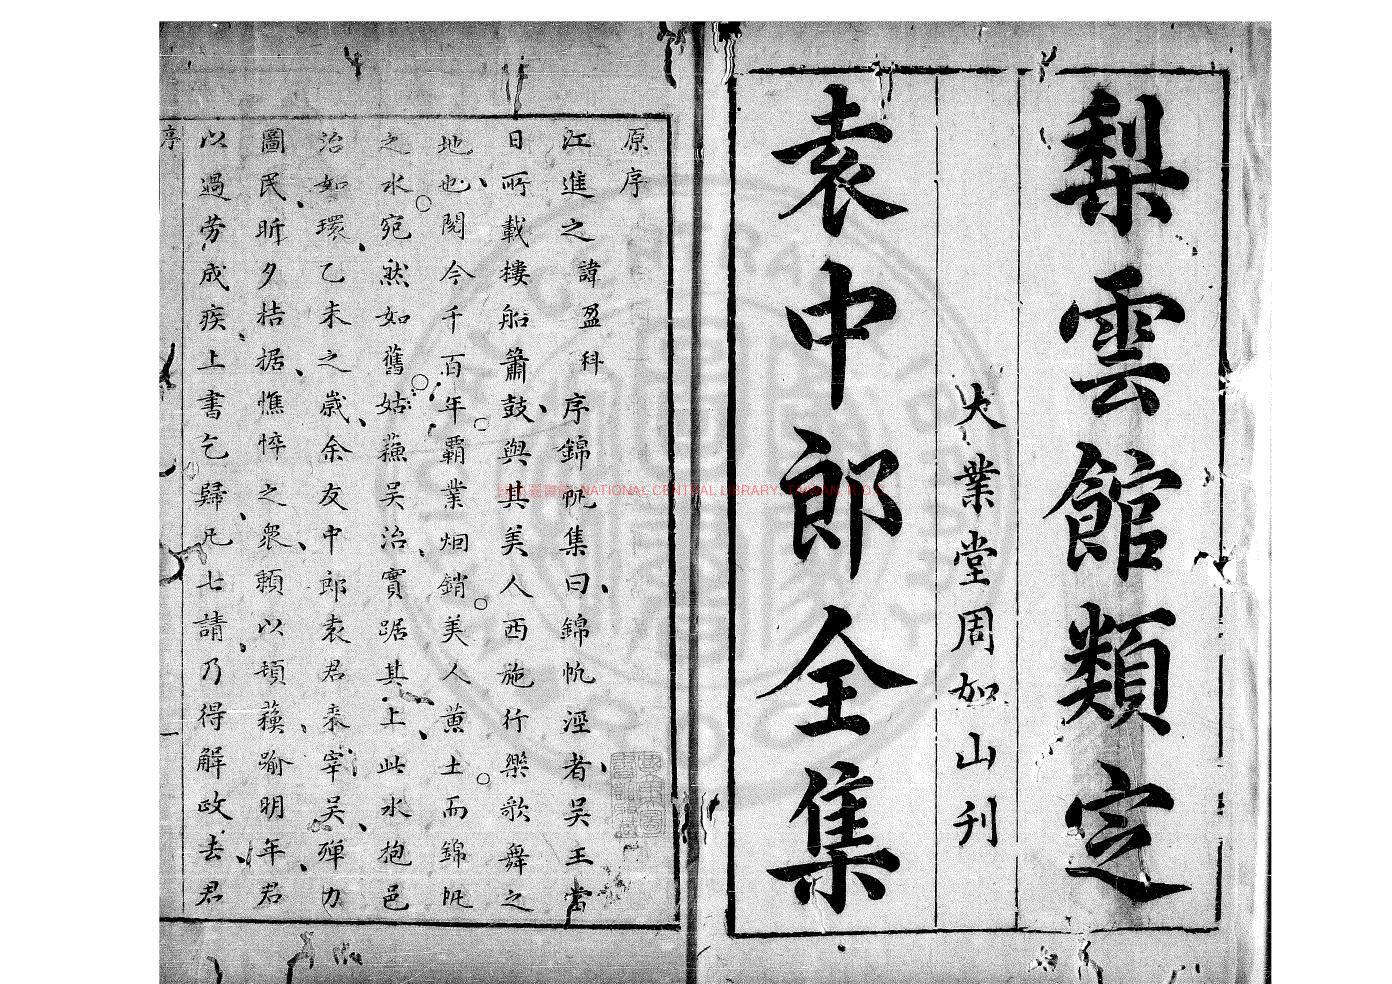 梨雲館類定
大業堂周如山刊
袁中郎全集
原序
江進之諱盈科序錦帆集曰錦帆涇者吳王當
日所載樓船簫鼓與其美人西施行樂歌舞之
地也閱今千百年霸業烟銷美人黄土而錦帆
之水宛然如舊姑蘇吳治實踞其上此水抱邑
治如環乙未之歲余友中郎袁君来宰吳殫力
圖民昕夕拮据憔悴之衆賴以頓蘇踰明年君
以過勞成疾上書乞歸凡七請乃得解政去君
序
NATIONAL CENTRAL LIBRARY, TAIWAN, R.O.C.